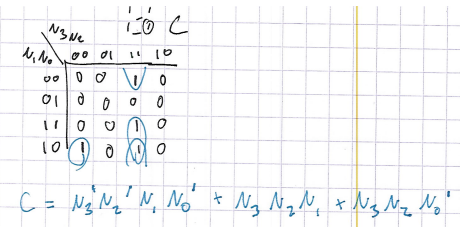 C
N₃N₂
N₁N₀ 00 01 11 10
00 0 0 1 0
01 0 0 0 0
11 0 0 1 0
10 1 0 1 0
C = N₃'N₂'N₁N₀' + N₃N₂N₁ + N₃N₂N₀'